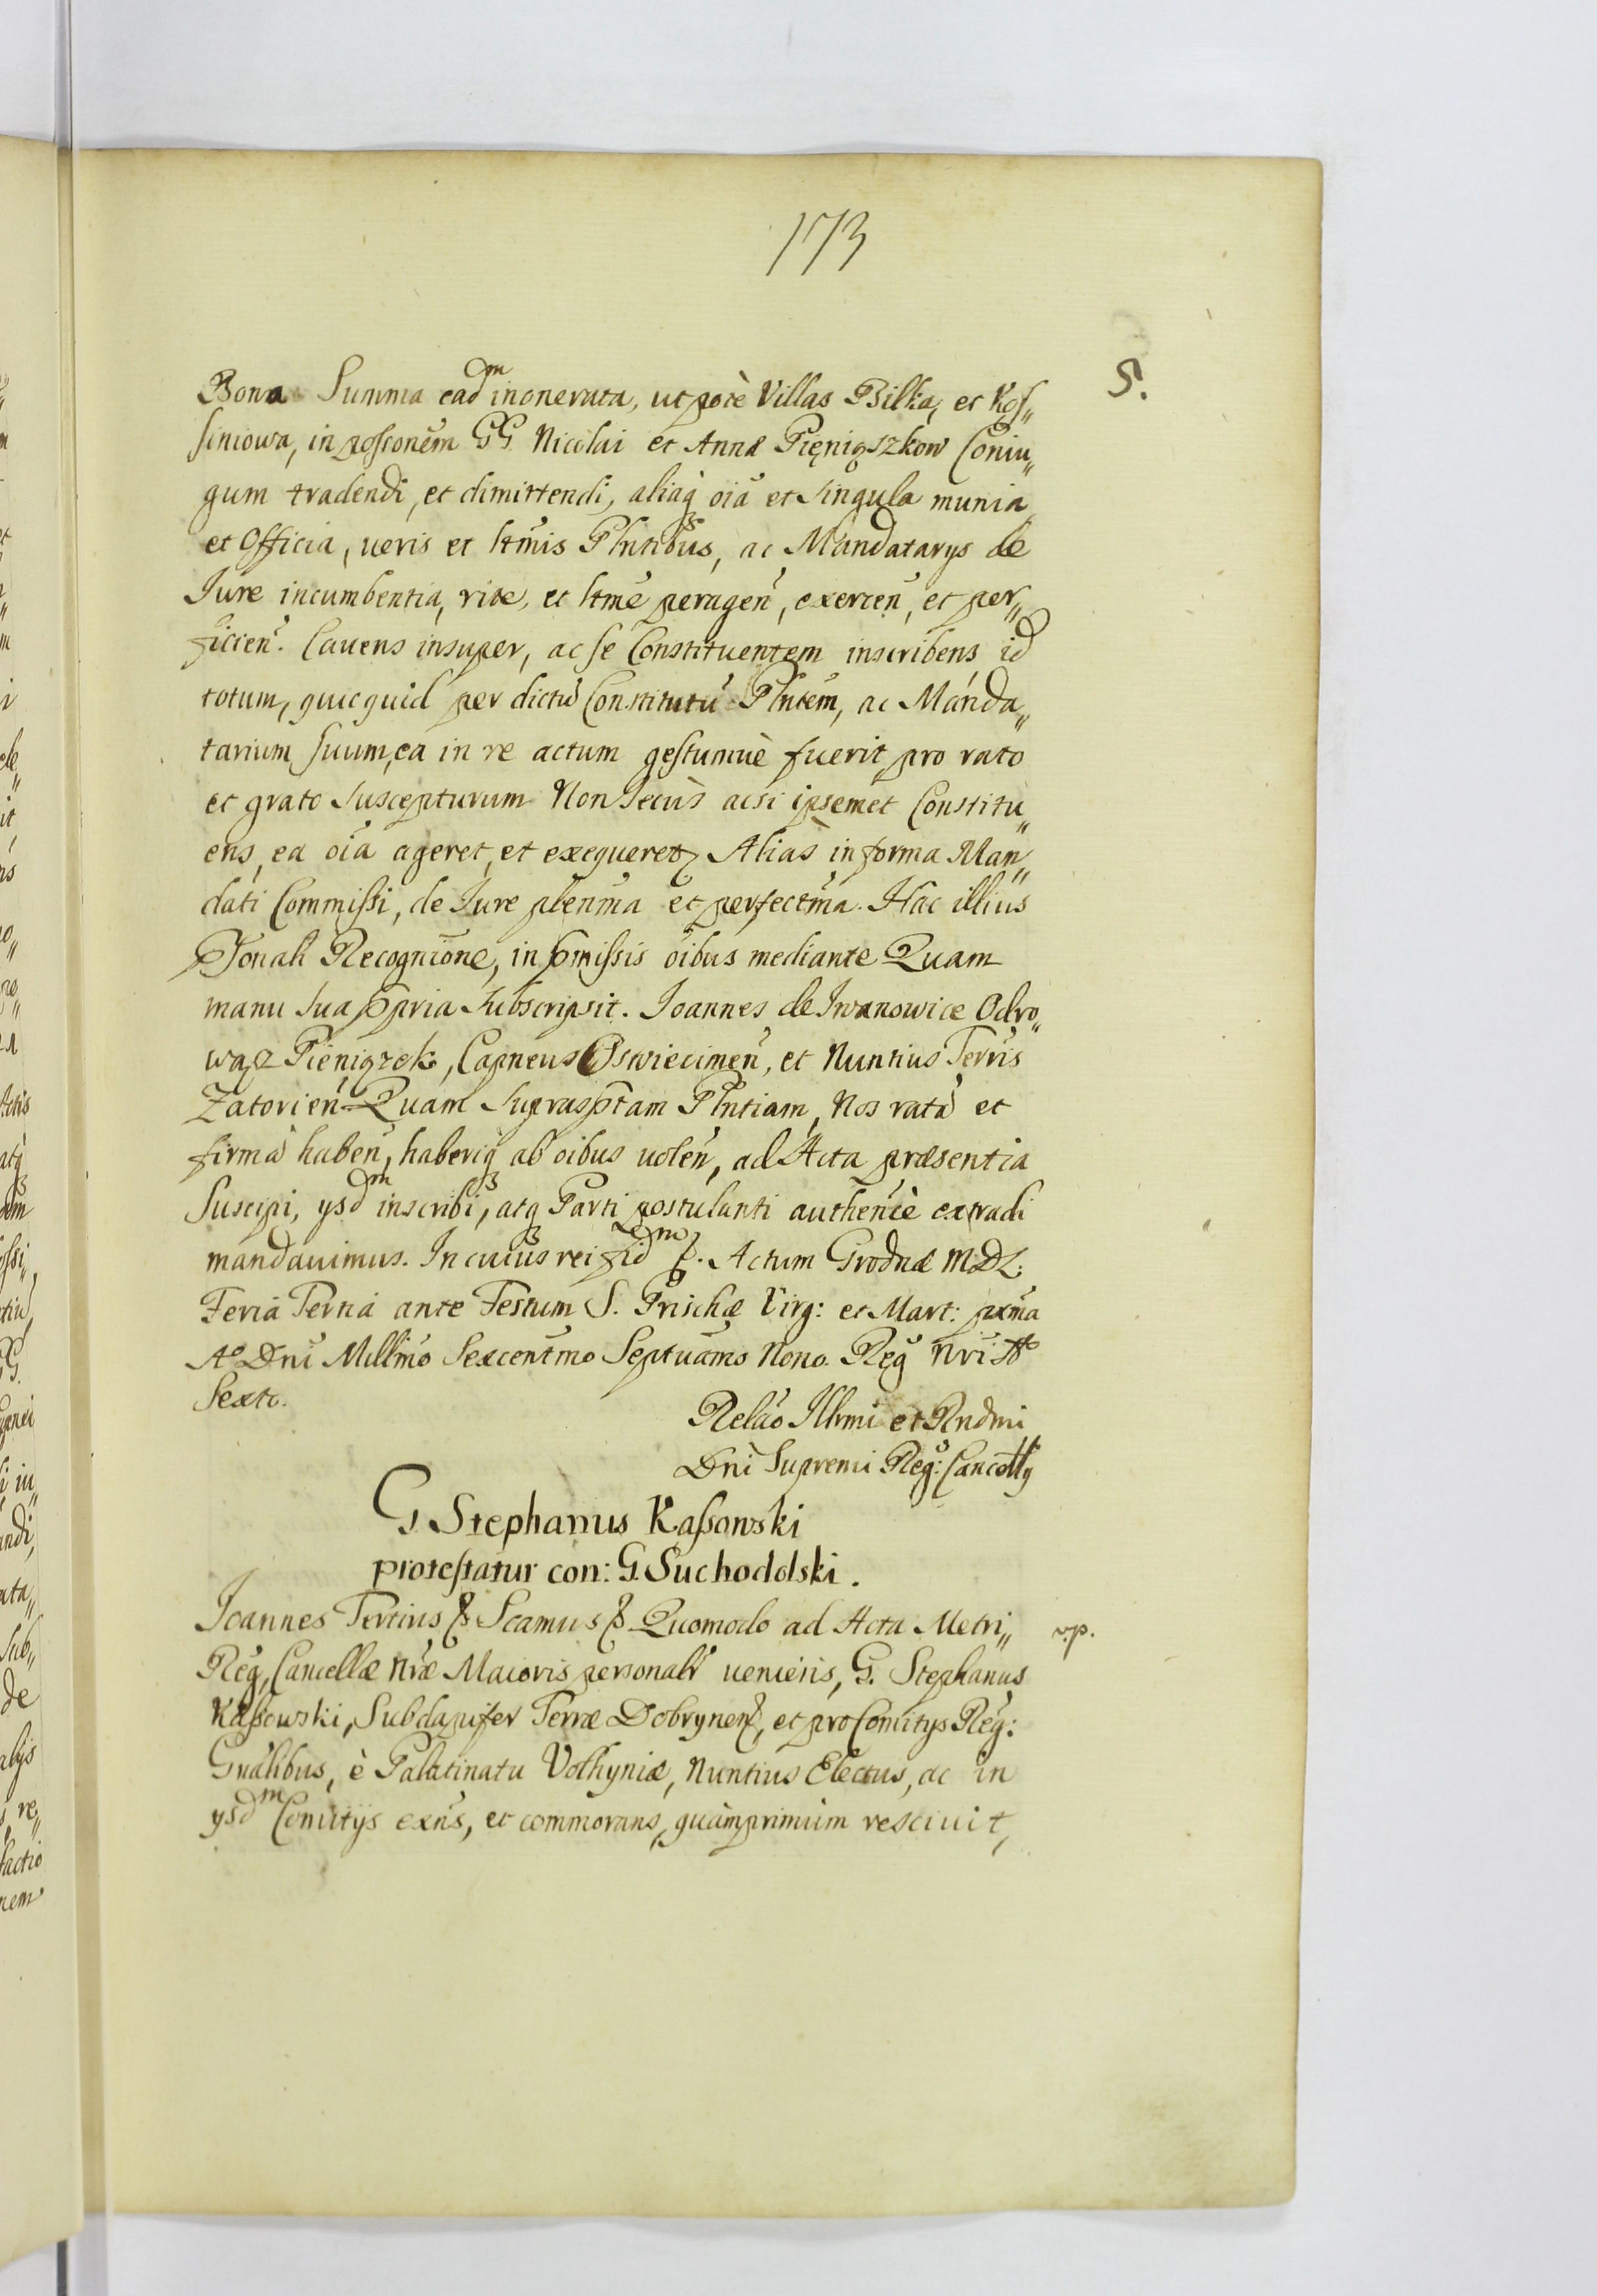 173
5.
Bona Summa ead͠m inonerata, utpotè Villas Bilka, et Kos„
siniowa, in possonem GG. Nicolai et Annæ Pięniąszkow Coniu„
gum tradendi, et dimittendi, aliaq́ oīa et singula munia
et Officia, ueris et ltmis Plntibus, ac Mandatarys de
Iure incumbentia, rite, et ltmē peragen̄, exercen̄, et per„
ficien̄. Cauens insuper, ac se Constituentem inscribens id
totum, quicquid per dictū Constitutū Plntem, ac Manda„
tarium suum, ea in re actum gestumuè fuerit, pro rato
et grato suscepturum Non secùs acsi ipsemet Constitu„
ens, ea oīa ageret, et exequeret̃ Alias in forma Man„
dati Commissi, de Iure plenma et perfectma. Hac illius
Psonali Recognione, in pmissis oībus mediante Quam
manu sua ppria subscripsit. Joannes de Iwanowice Odro„
wąz Pieniązek, Capneus Oswiecimen̄, et Nuntius Terris
Zatorien̄ Quam suprasptam Plntiam, Nos ratā et
firmā haben̄, haberiq́ ab oībus uolen̄, ad Acta præsentia
suscipi, ysd͠m inscribi, atq́ Parti postulanti authenticè extradi
mandauimus. In cuius rei fid͠em &. Actum Grodnæ MDL.
Feria Tertia ante Festum S. Prischæ Virg: et Mart: pxma
Aº Dni Millmo Sexcentmo Septuamo Nono. Reg̃ Nri Aº
Sexto.
Relāo Illmi et Rndmi
Dni Supremi Reg: Cancelly
G. Stephanus Kassowski
protestatur con: G. Suchodolski.
Joannes Tertius & Scamus & Quomodo ad Acta Metri„
v.p.
Reg, Cancellæ Nræ Maioris personalr ueniens, G. Stephanus
Kassowski, Subdapifer Terræ Dobrynen̄, et pro Comitys Reg:
Gnālibus, è Palatinatu Volhyniæ, Nuntius Electus, ac in
ysd͠m Comitijs exns, et commorans, quàmprimùm resciuit,